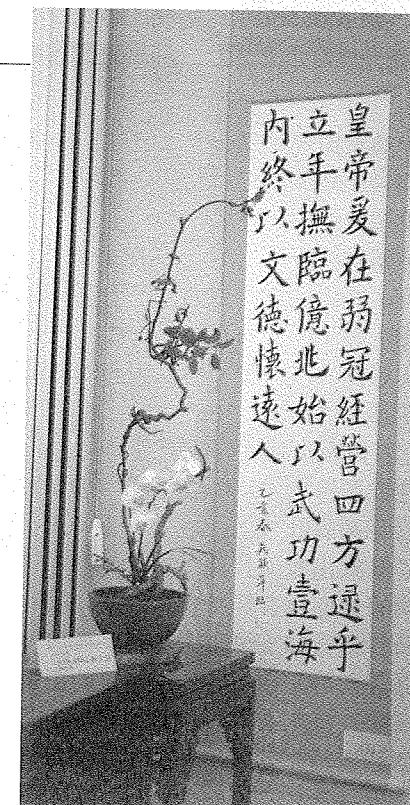 皇帝爰在弱冠經營四方逯乎
立年撫臨億兆始以武功壹海
內終以文德懷遠人
乙亥春